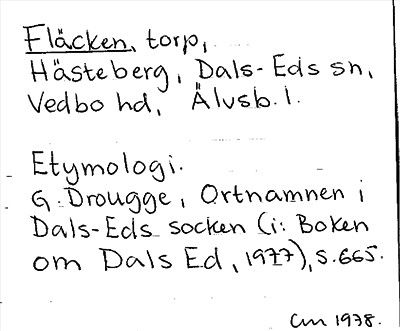 Fläcken, torp,
Hästeberg, Dals-Eds sn,
Vedbo hd, Älvsb. l.
Etymologi.
G. Drougge, Ortnamnen i
Dals-Eds socken (i: Boken
om Dals Ed, 1977), s. 665.
Cm 1978.